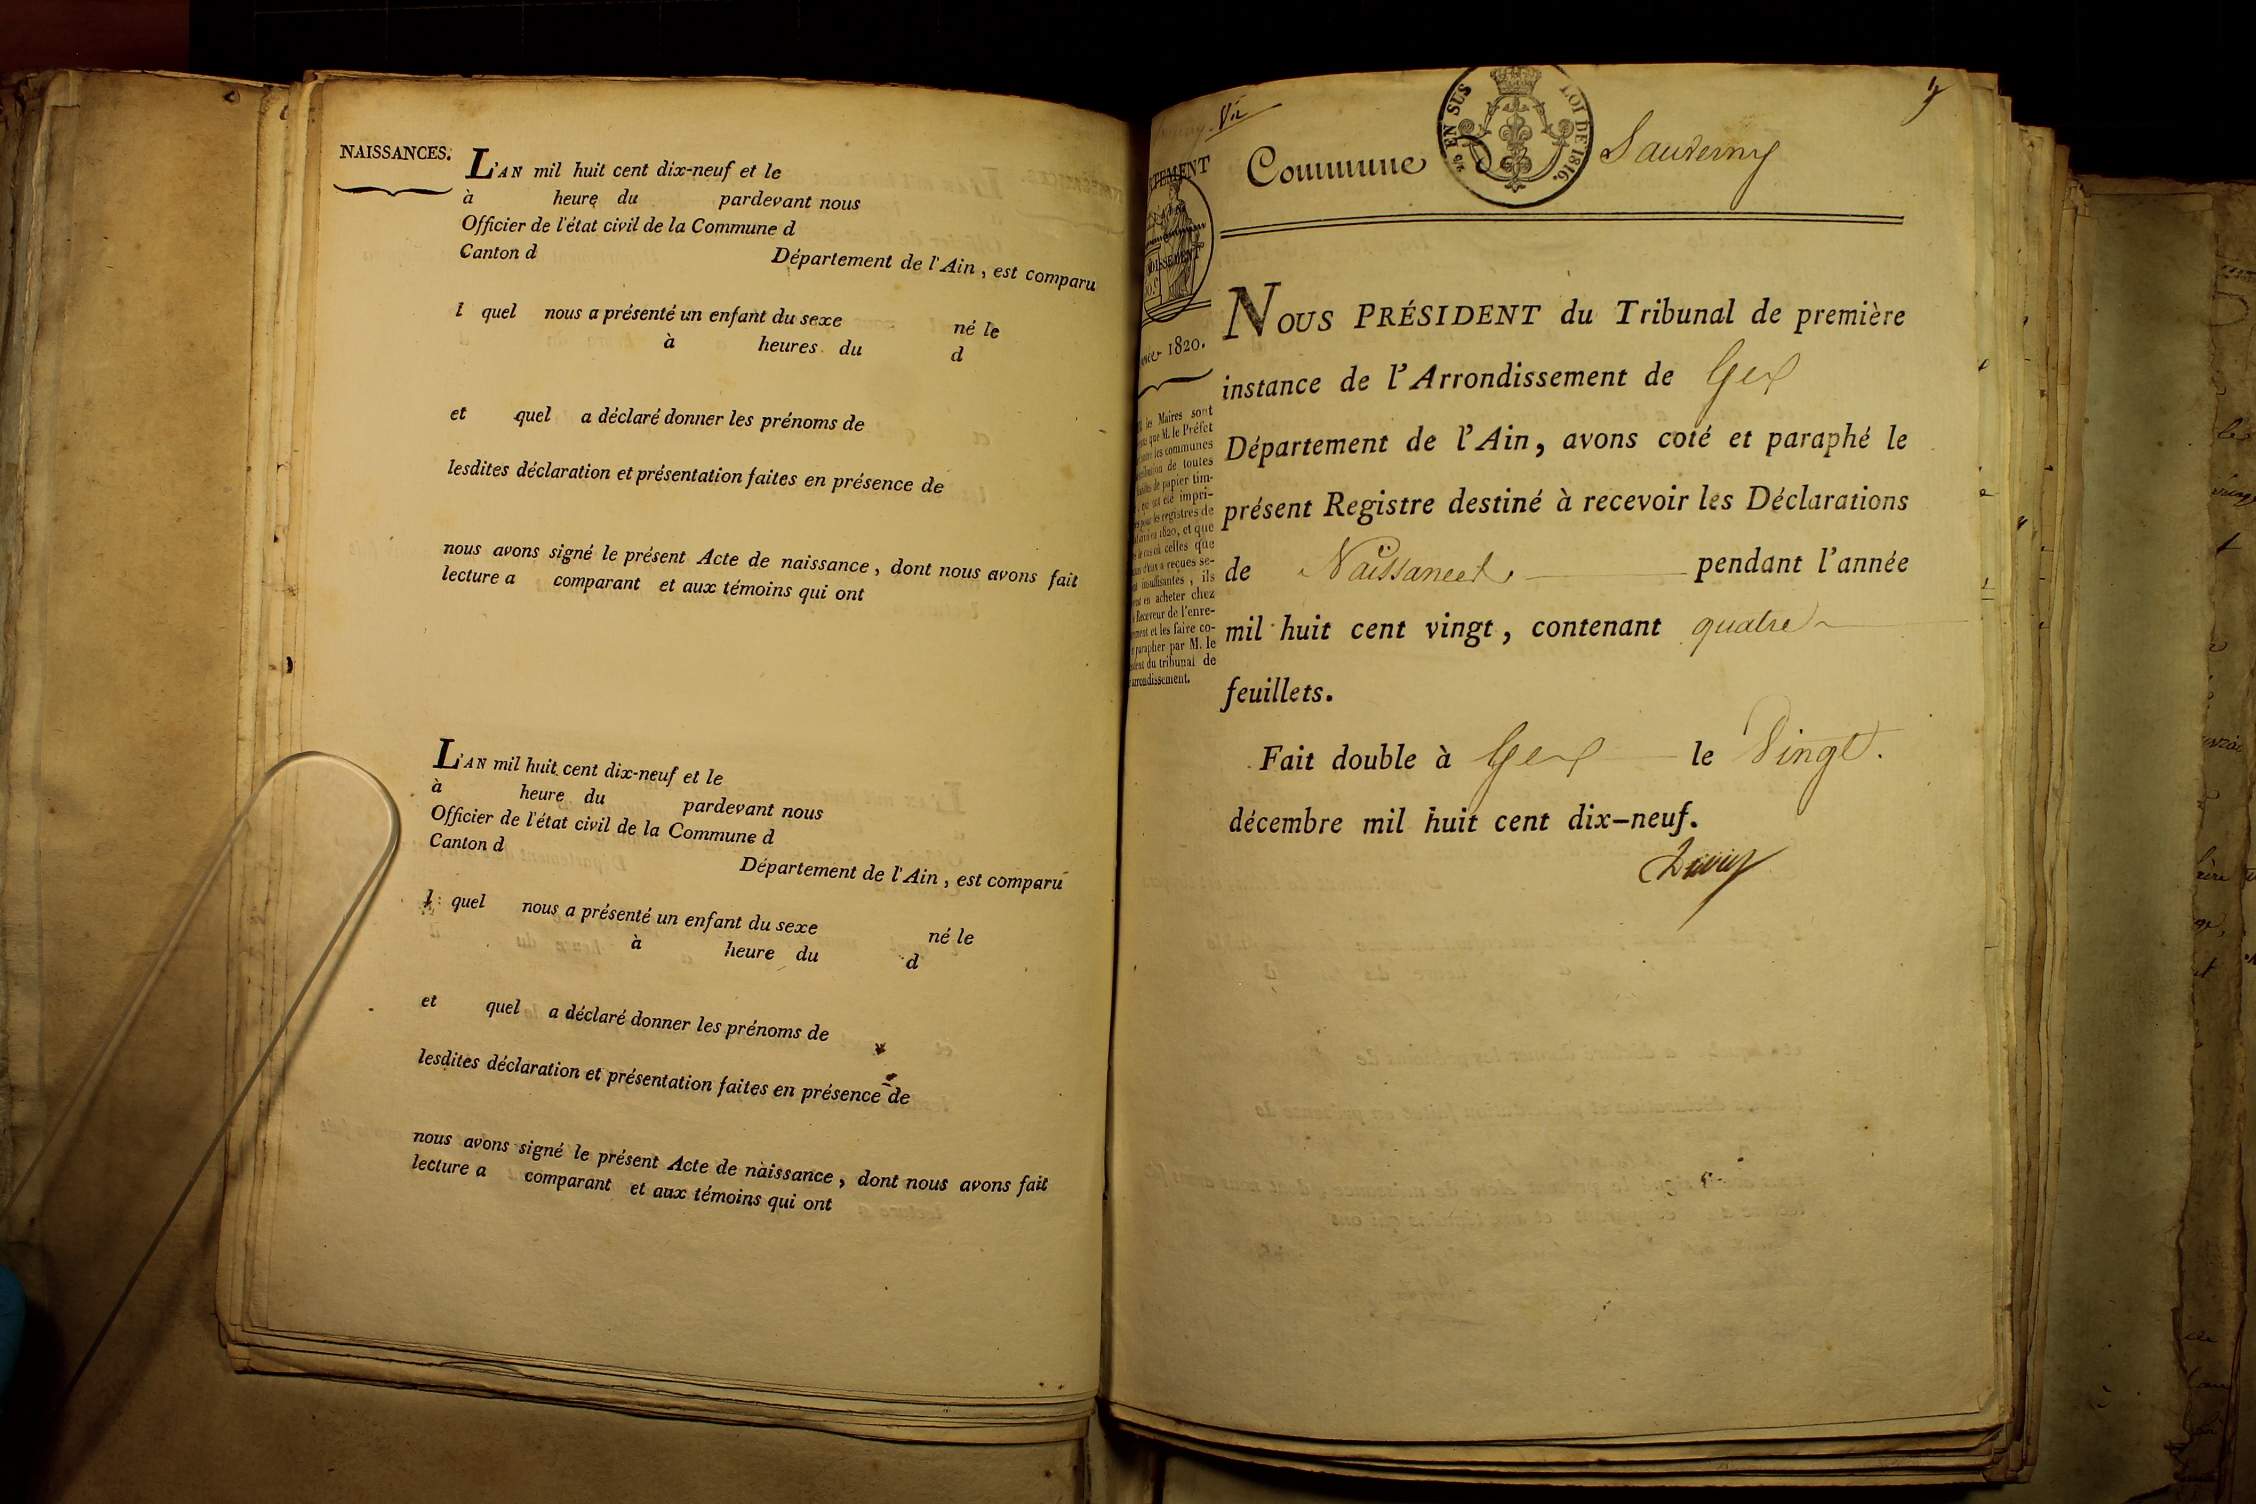 NAISSANCES.
L'AN mil huit cent dix-neuf et le
à heure du pardevant nous
Officier de l'état civil de la Commune d
Canton d Département de l'Ain, est comparu
l quel nous a présenté un enfant du sexe né le
à heures du d
et quel a déclaré donner les prénoms de
lesdites déclaration et présentation faites en présence de
nous avons signé le présent Acte de naissance, dont nous avons fait
lecture a comparant et aux témoins qui ont
L'AN mil huit cent dix-neuf et le
à heure du pardevant nous
Officier de l'état civil de la Commune d
Canton d Département de l'Ain, est comparu
l quel nous a présenté un enfant du sexe né le
à heure du d
et quel a déclaré donner les prénoms de
lesdites déclaration et présentation faites en présence de
nous avons signé le présent Acte de naissance, dont nous avons fait
lecture a comparant et aux témoins qui ont
Commune de Sauverny
EN SUS LOI DE 1816.
1820.
les Maires sont
que M. le Préfet
les communes
de toutes
de papier tim-
été impri-
les registres de
1820, et que
celles que
reçues se-
insuffisantes, ils
en acheter chez
Receveur de l'enre-
et les faire co-
parapher par M. le
du tribunal de
arrondissement.
NOUS PRÉSIDENT du Tribunal de première
instance de l'Arrondissement de Gex
Département de l'Ain, avons coté et paraphé le
présent Registre destiné à recevoir les Déclarations
de Naissances pendant l'année
mil huit cent vingt, contenant quatre
feuillets.
Fait double à Gex le Vingt.
décembre mil huit cent dix-neuf.